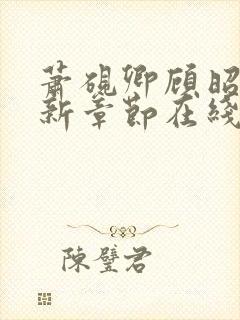 萧砚卿顾昭
新章节在线
陈璧君